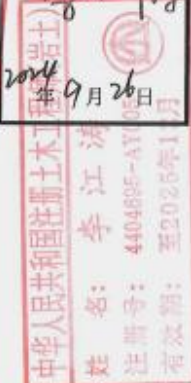 2024年9月26日
中华人民共和国注册土木工程师(岩土)
姓 名: 李江涛
注册号: 4404895-AY0
有效期: 至2025年1 月